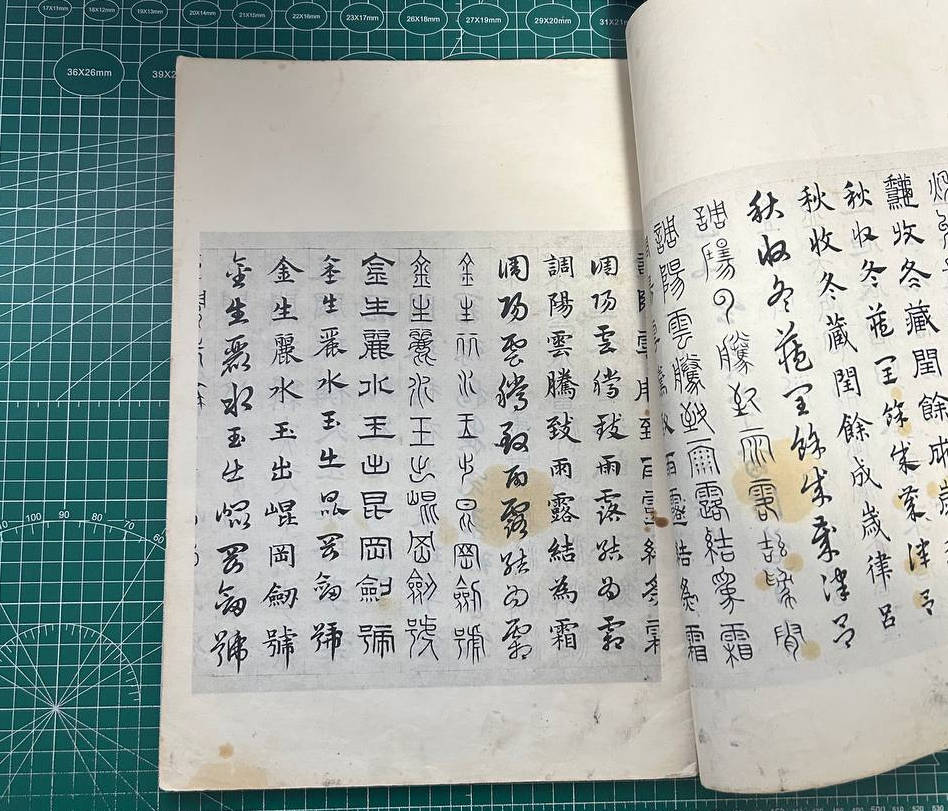 17X11mm
18X12mm
19X13mm
20X14mm
21X15mm
22X16mm
23X17mm
26X18mm
27X19mm
29X20mm
36X26mm
秋收冬藏閏餘成歲律呂
秋收冬藏閏餘成歲律呂
秋收冬藏閏餘成歲律呂
調陽雲騰致雨露結為霜
調陽雲騰致雨露結為霜
調陽雲騰致雨露結為霜
調陽雲騰致雨露結為霜
調陽雲騰致雨露結為霜
金生麗水玉出昆岡劒號
金生麗水玉出崐岡劒號
金生麗水玉出昆岡劒號
金生麗水玉出昆岡劒號
金生麗水玉出崐岡劒號
金生麗水玉出崐岡劒號
100
90
80
70
60